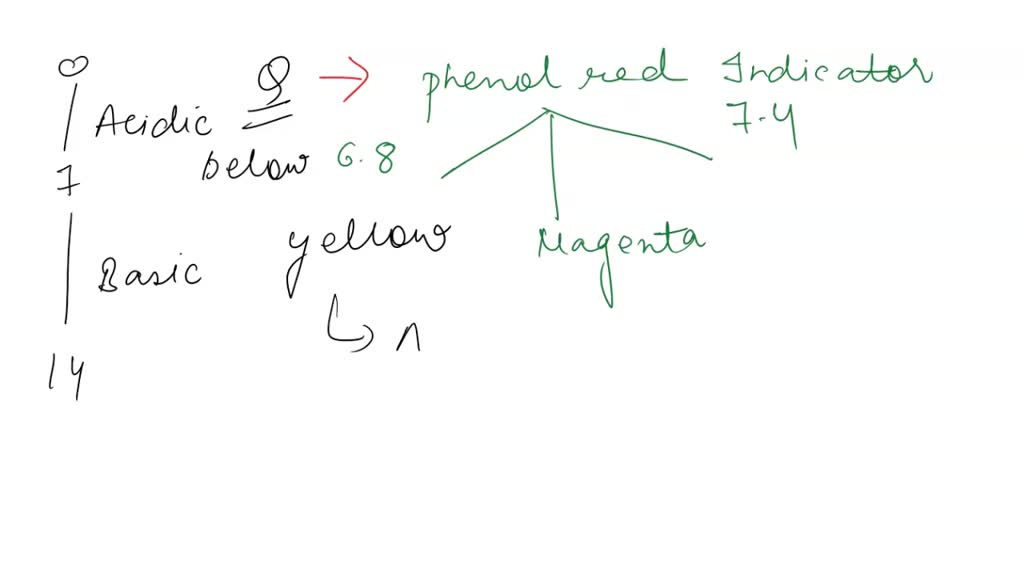 0
Acidic
7
Basic
14
Q → phenol red Indicator
7.4
below 6.8
yellow
Magenta
↳ A